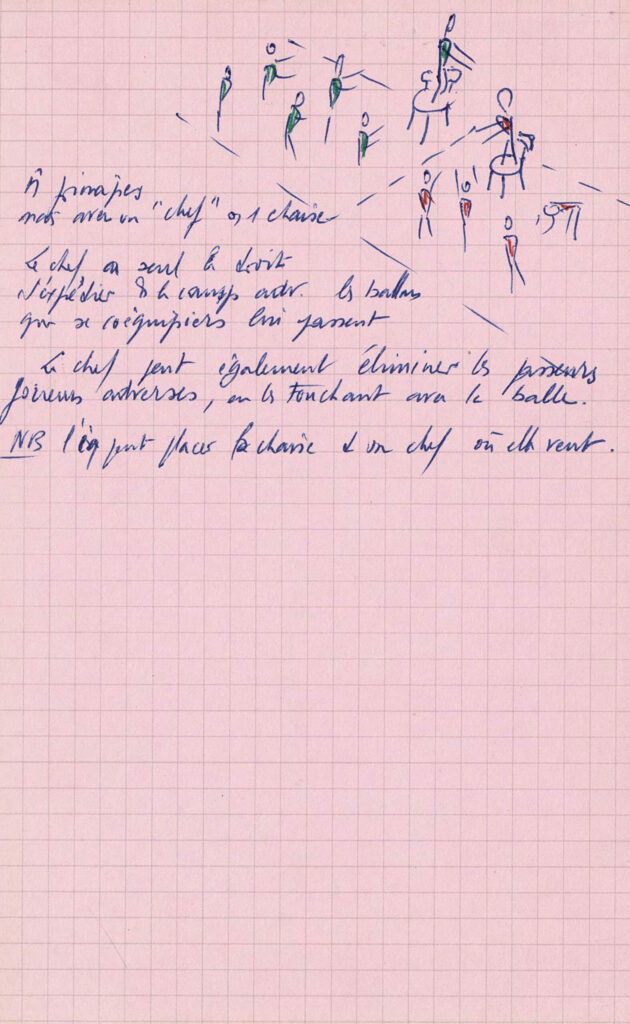 m̂ principes
mais avec un "chef" sur 1 chaise
Le chef a seul le droit
d'expédier ds le camp adv. les ballons
que se coéquipiers lui passent
Le chef peut également éliminer les
joueurs adverses, en les touchant avec la balle.
NB l'éq peut placer la chaise d son chef où elle veut.